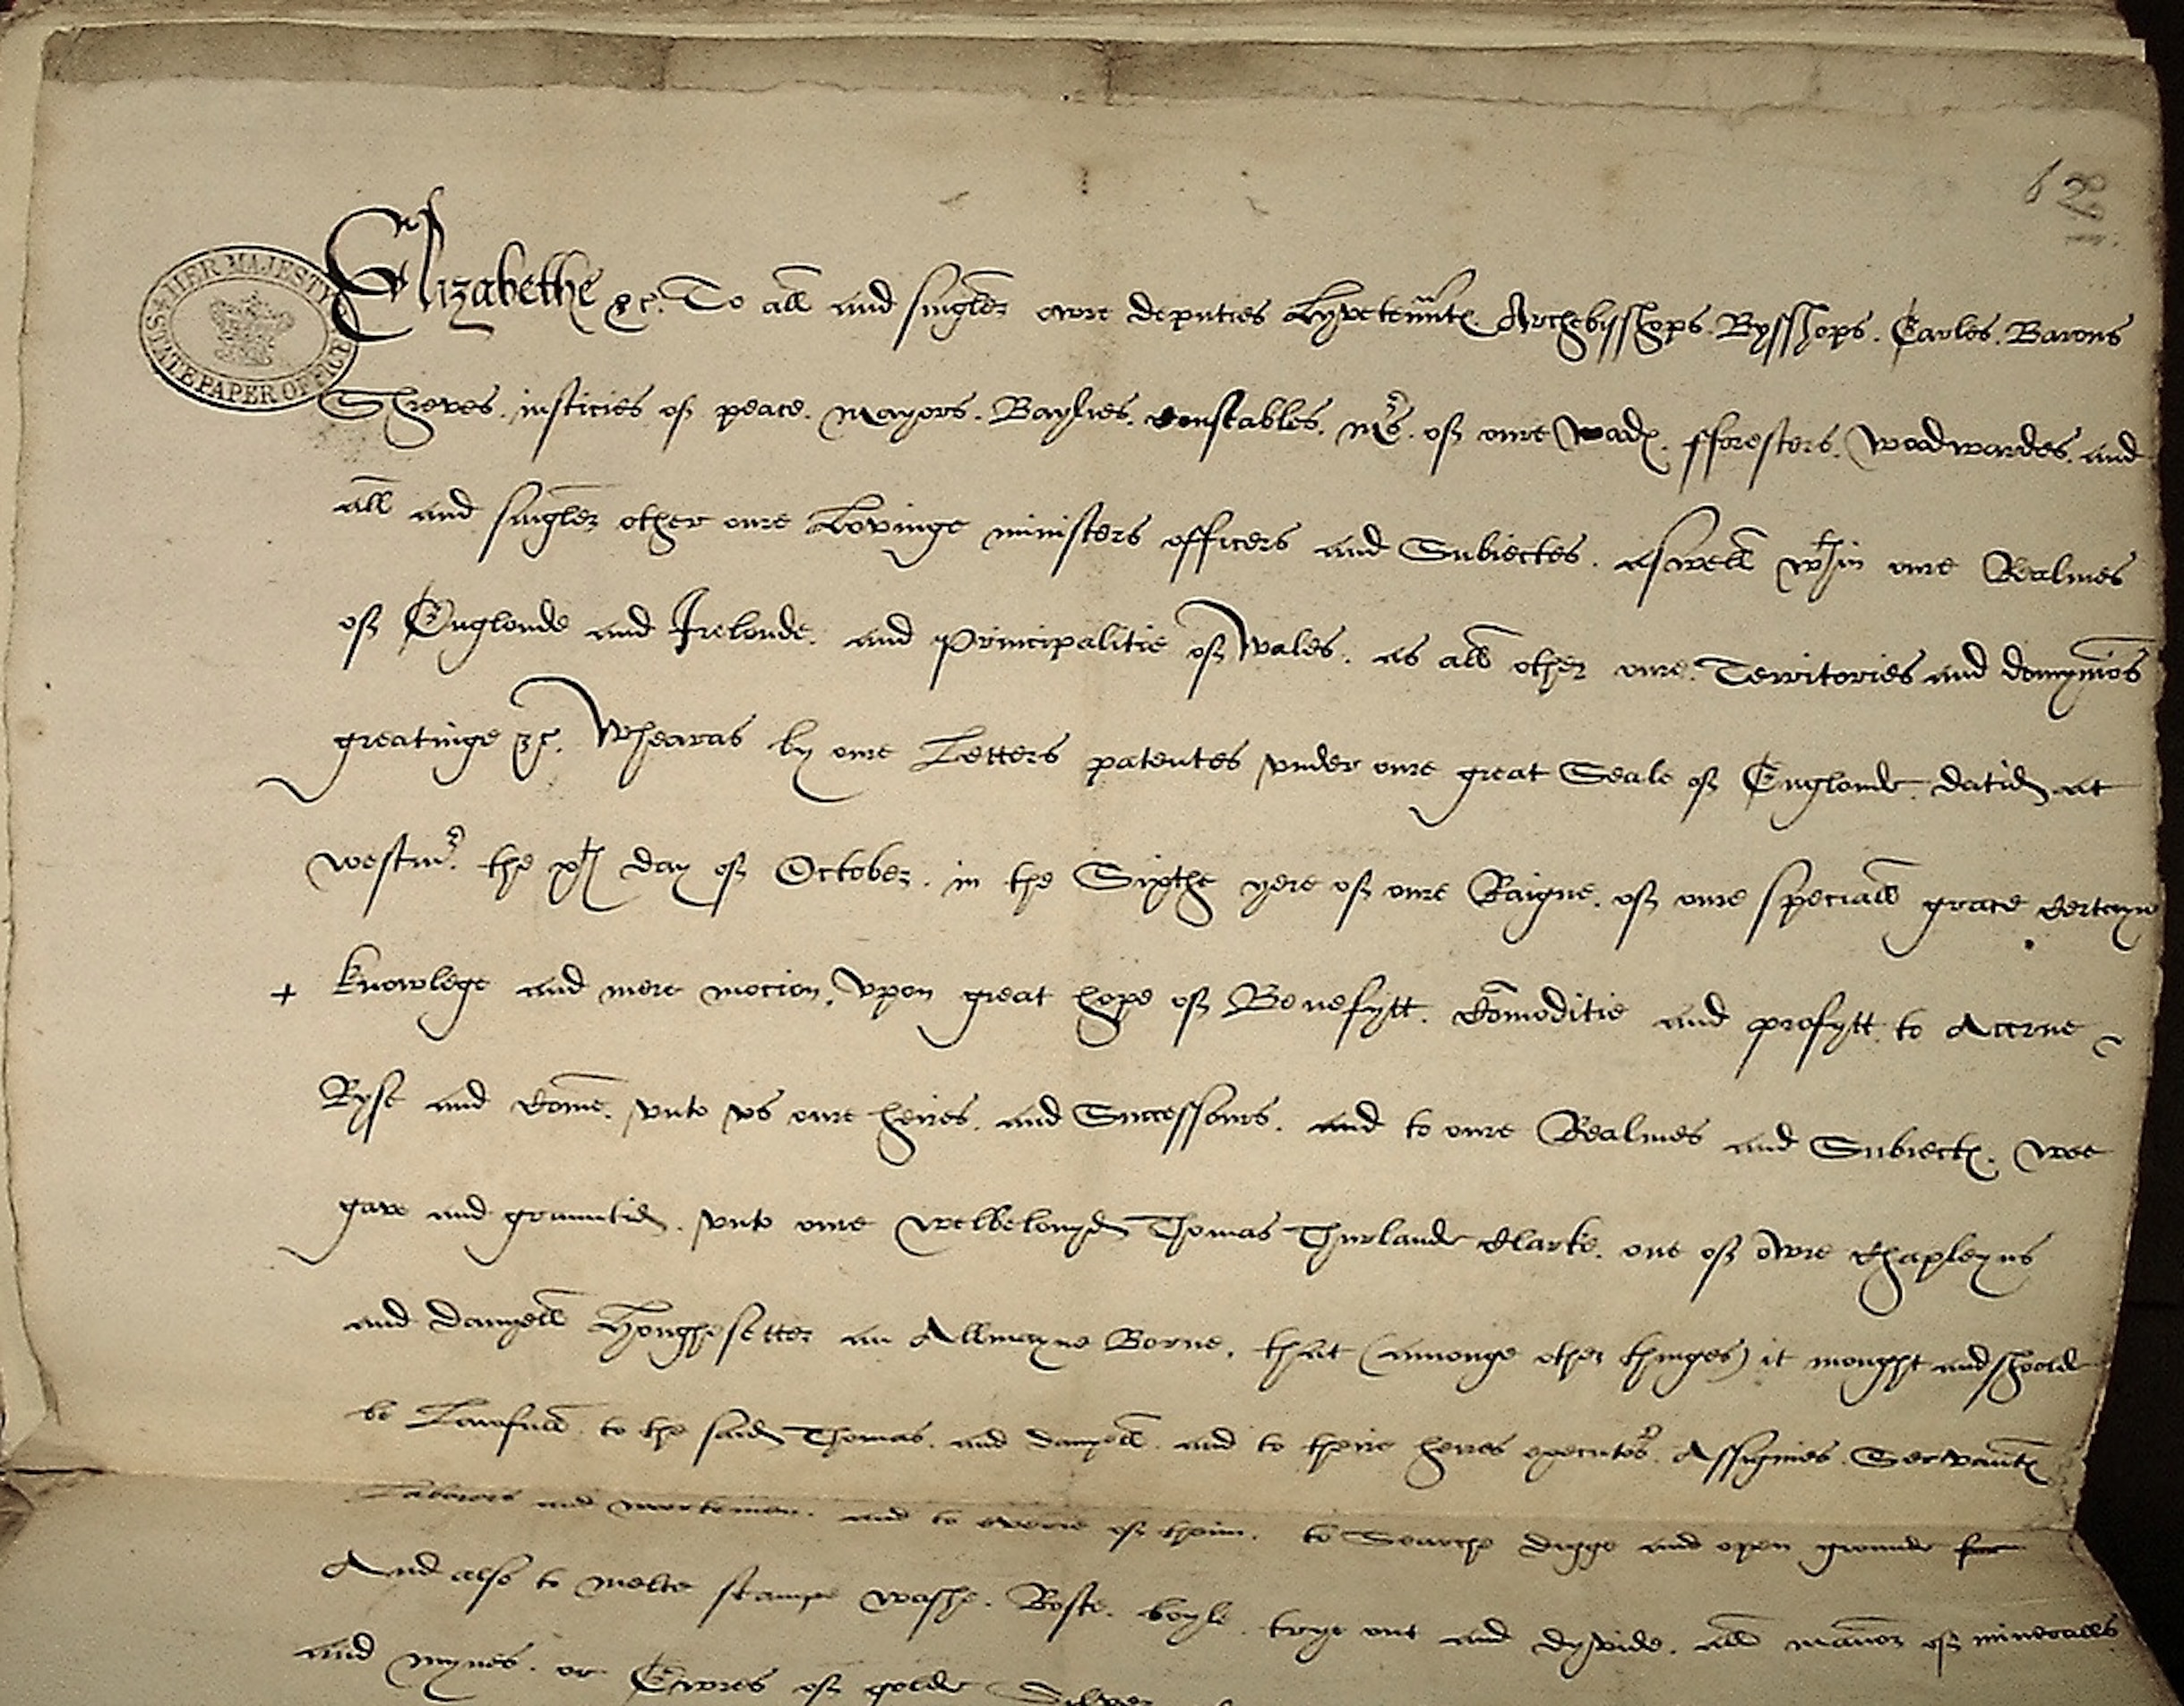 HER MAJESTY'S
STATE PAPER OFFICE
Elizabethe &c. To all and singler owre deputies Lyvetennⁿtes Archebysshops. Bysshops. Earles. Barons
Shreves. iusticies of peace. mayors. Baylies. Constables. mʳˢ. of oure wades. fforesters. woodwardes. and
all and singler other oure Lovinge ministers officers and Subiectes. aswell wᵗhin oure Realmes
of Englonde and Irelonde. and Principalitie of Wales. as all other oure. Territories and domynios
greatinge &c. Whearas by oure Letters patentes vnder oure great Seale of Englonde. datid at
westmʳ. the xᵗʰ day of October. in the Sixthe yere of oure Raigne. of oure speciall grace certeyn
+ knowlege and mere mocion. vpon great hope of Benefytt. Comoditie and profytt to Accrue
Ryse and Come. vnto vs oure heires. and Successours. and to oure Realmes and Subiectes. wee
gave and grauntid. vnto oure welbelovyd Thomas Thurlande Clarke. one of owre Chapleyns
and Danyell Houghsetter an Allmayne Borne. that (amonge other thinges) it mought and shoolde
be Lawfull to the said Thomas. and Danyell. and to theire heires executoʳˢ. Assignies. Servauntes
Laborors and workemen. and to everie of theim. to Searche digge and open grounde
And also to melte stampe washe. Roste. boyle. trye out and dyvide. all maner of mineralls
and mynes. or Ewres of golde Silver